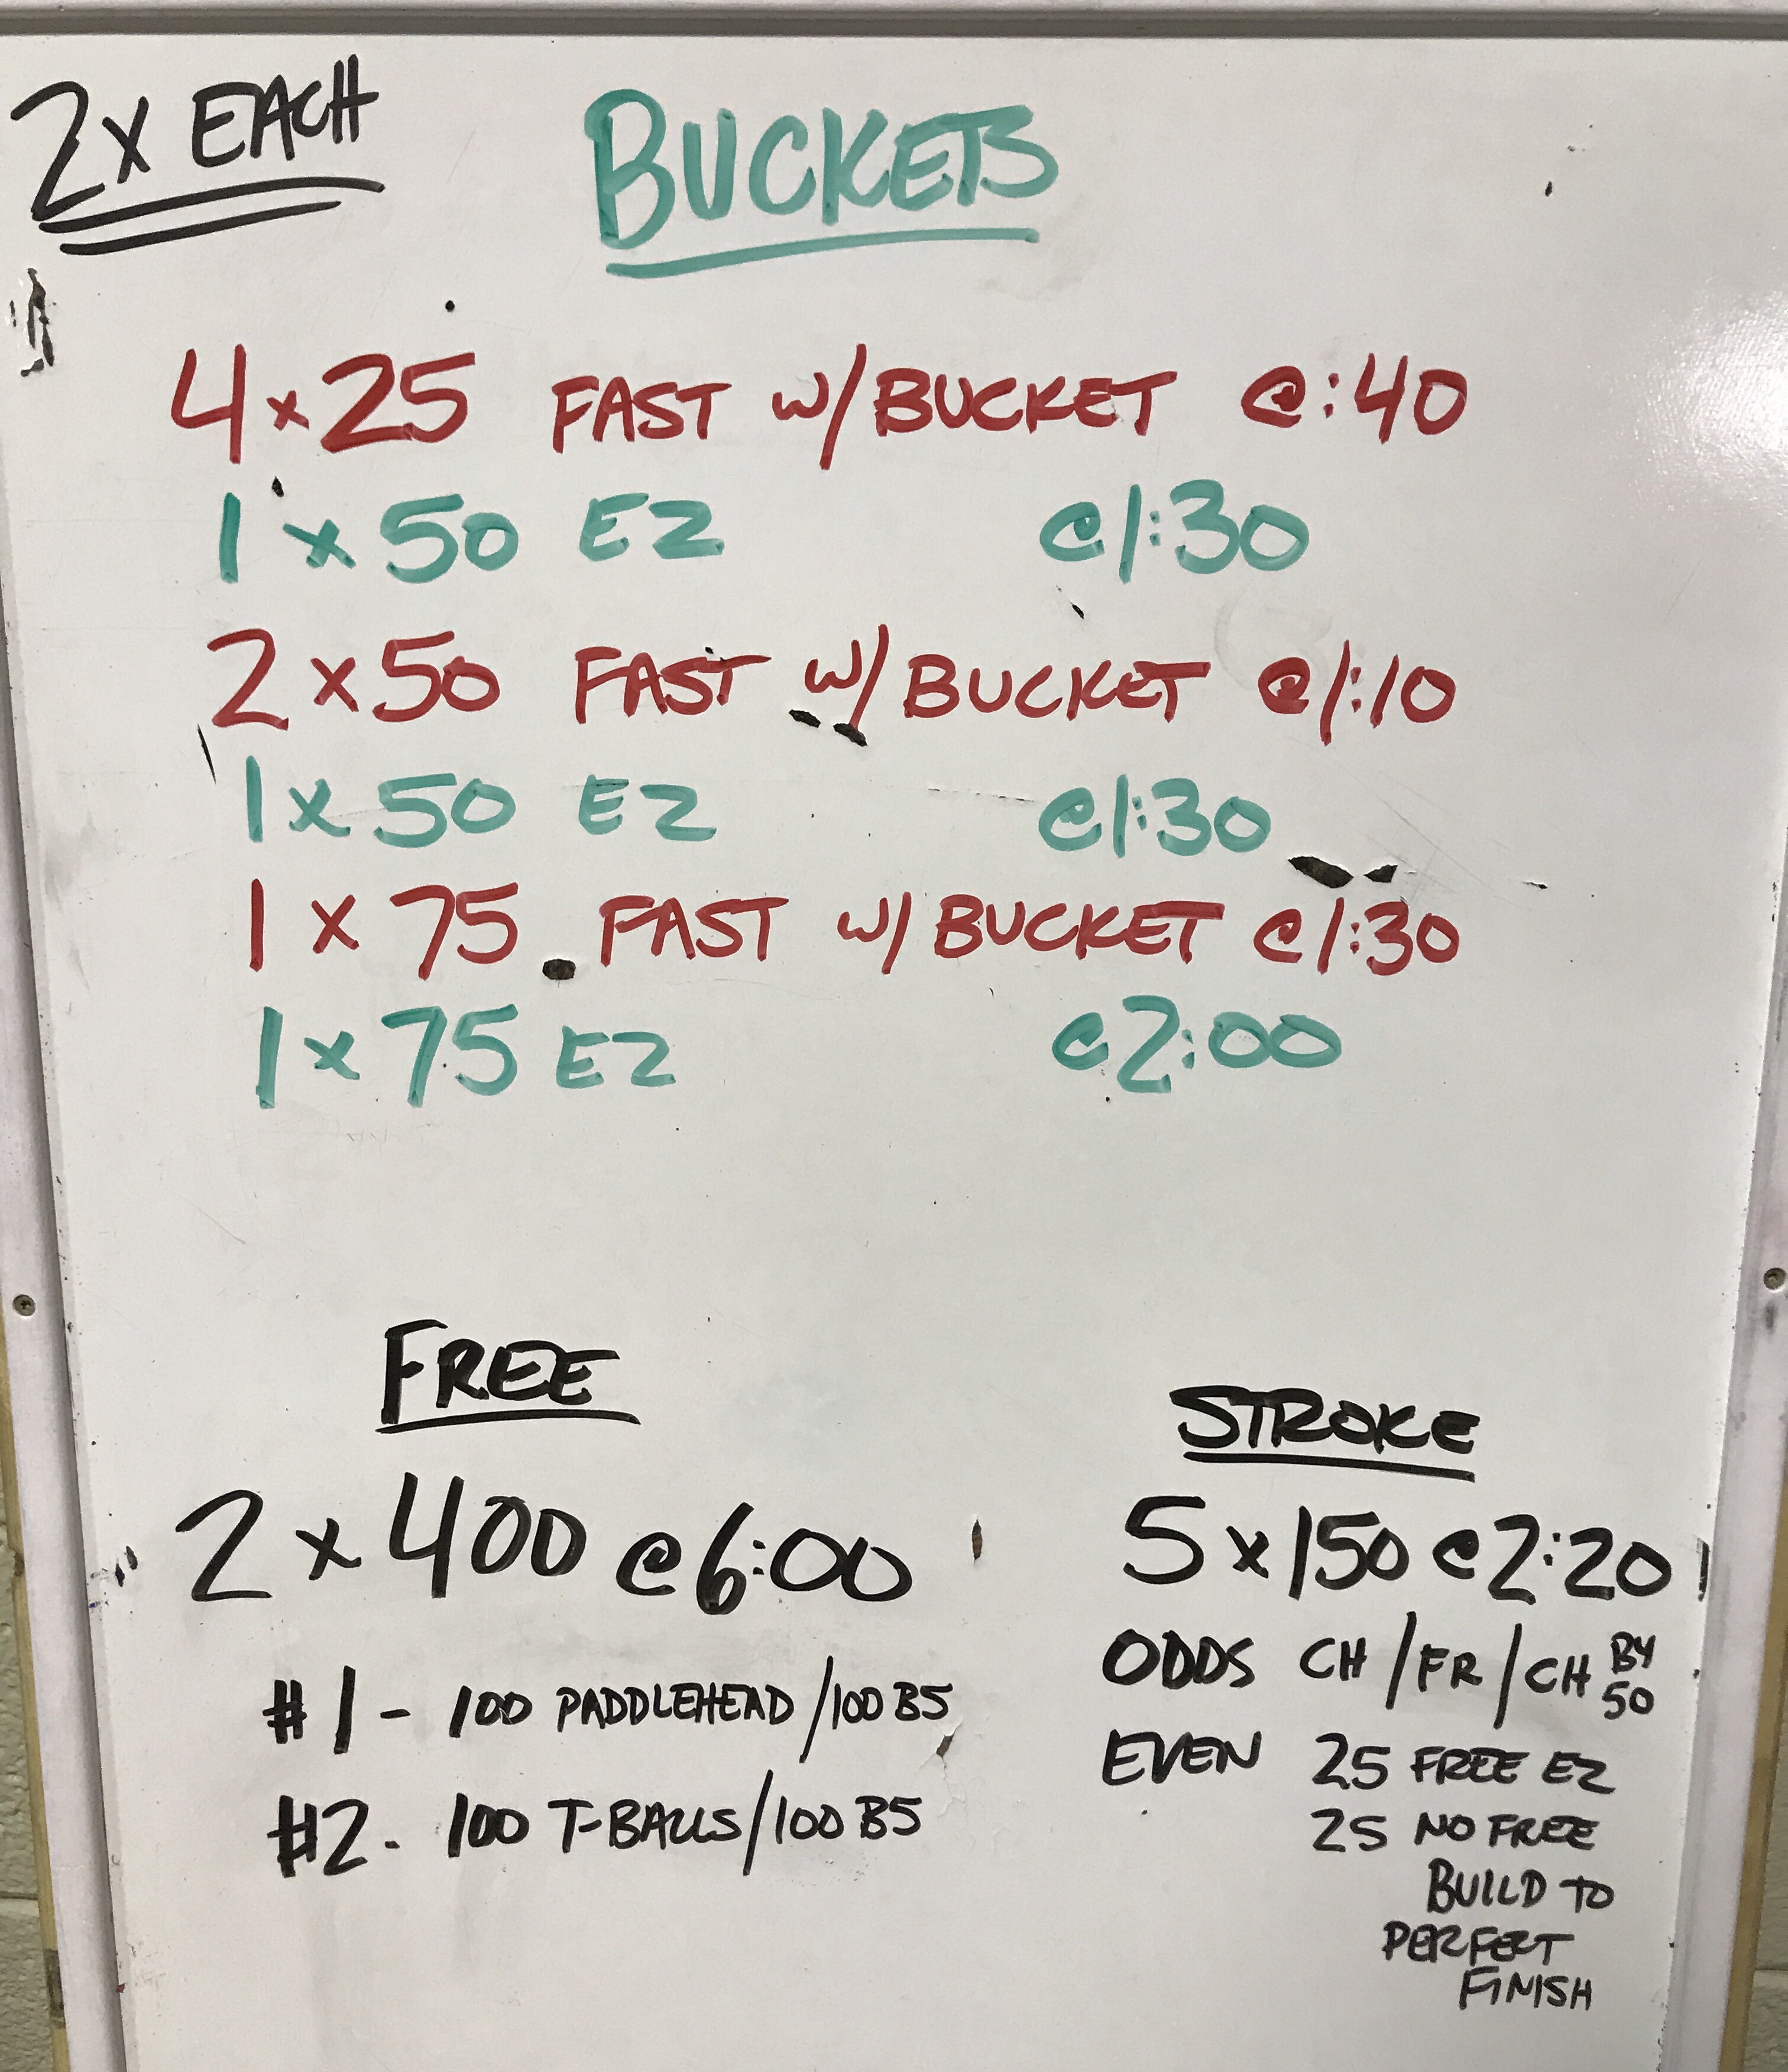 2x EACH
BUCKETS
4x25 FAST W/BUCKET @:40
1x50 EZ @1:30
2x50 FAST W/BUCKET @1:10
1x50 EZ @1:30
1x75 FAST W/BUCKET @1:30
1x75 EZ @2:00
FREE
2x400 @6:00
#1- 100 PADDLEHEAD/100 B5
#2- 100 T-BALLS/100 B5
STROKE
5x150 @2:20
ODDS CH/FR/CH BY 50
EVEN 25 FREE EZ
25 NO FREE
BUILD TO
PERFECT
FINISH